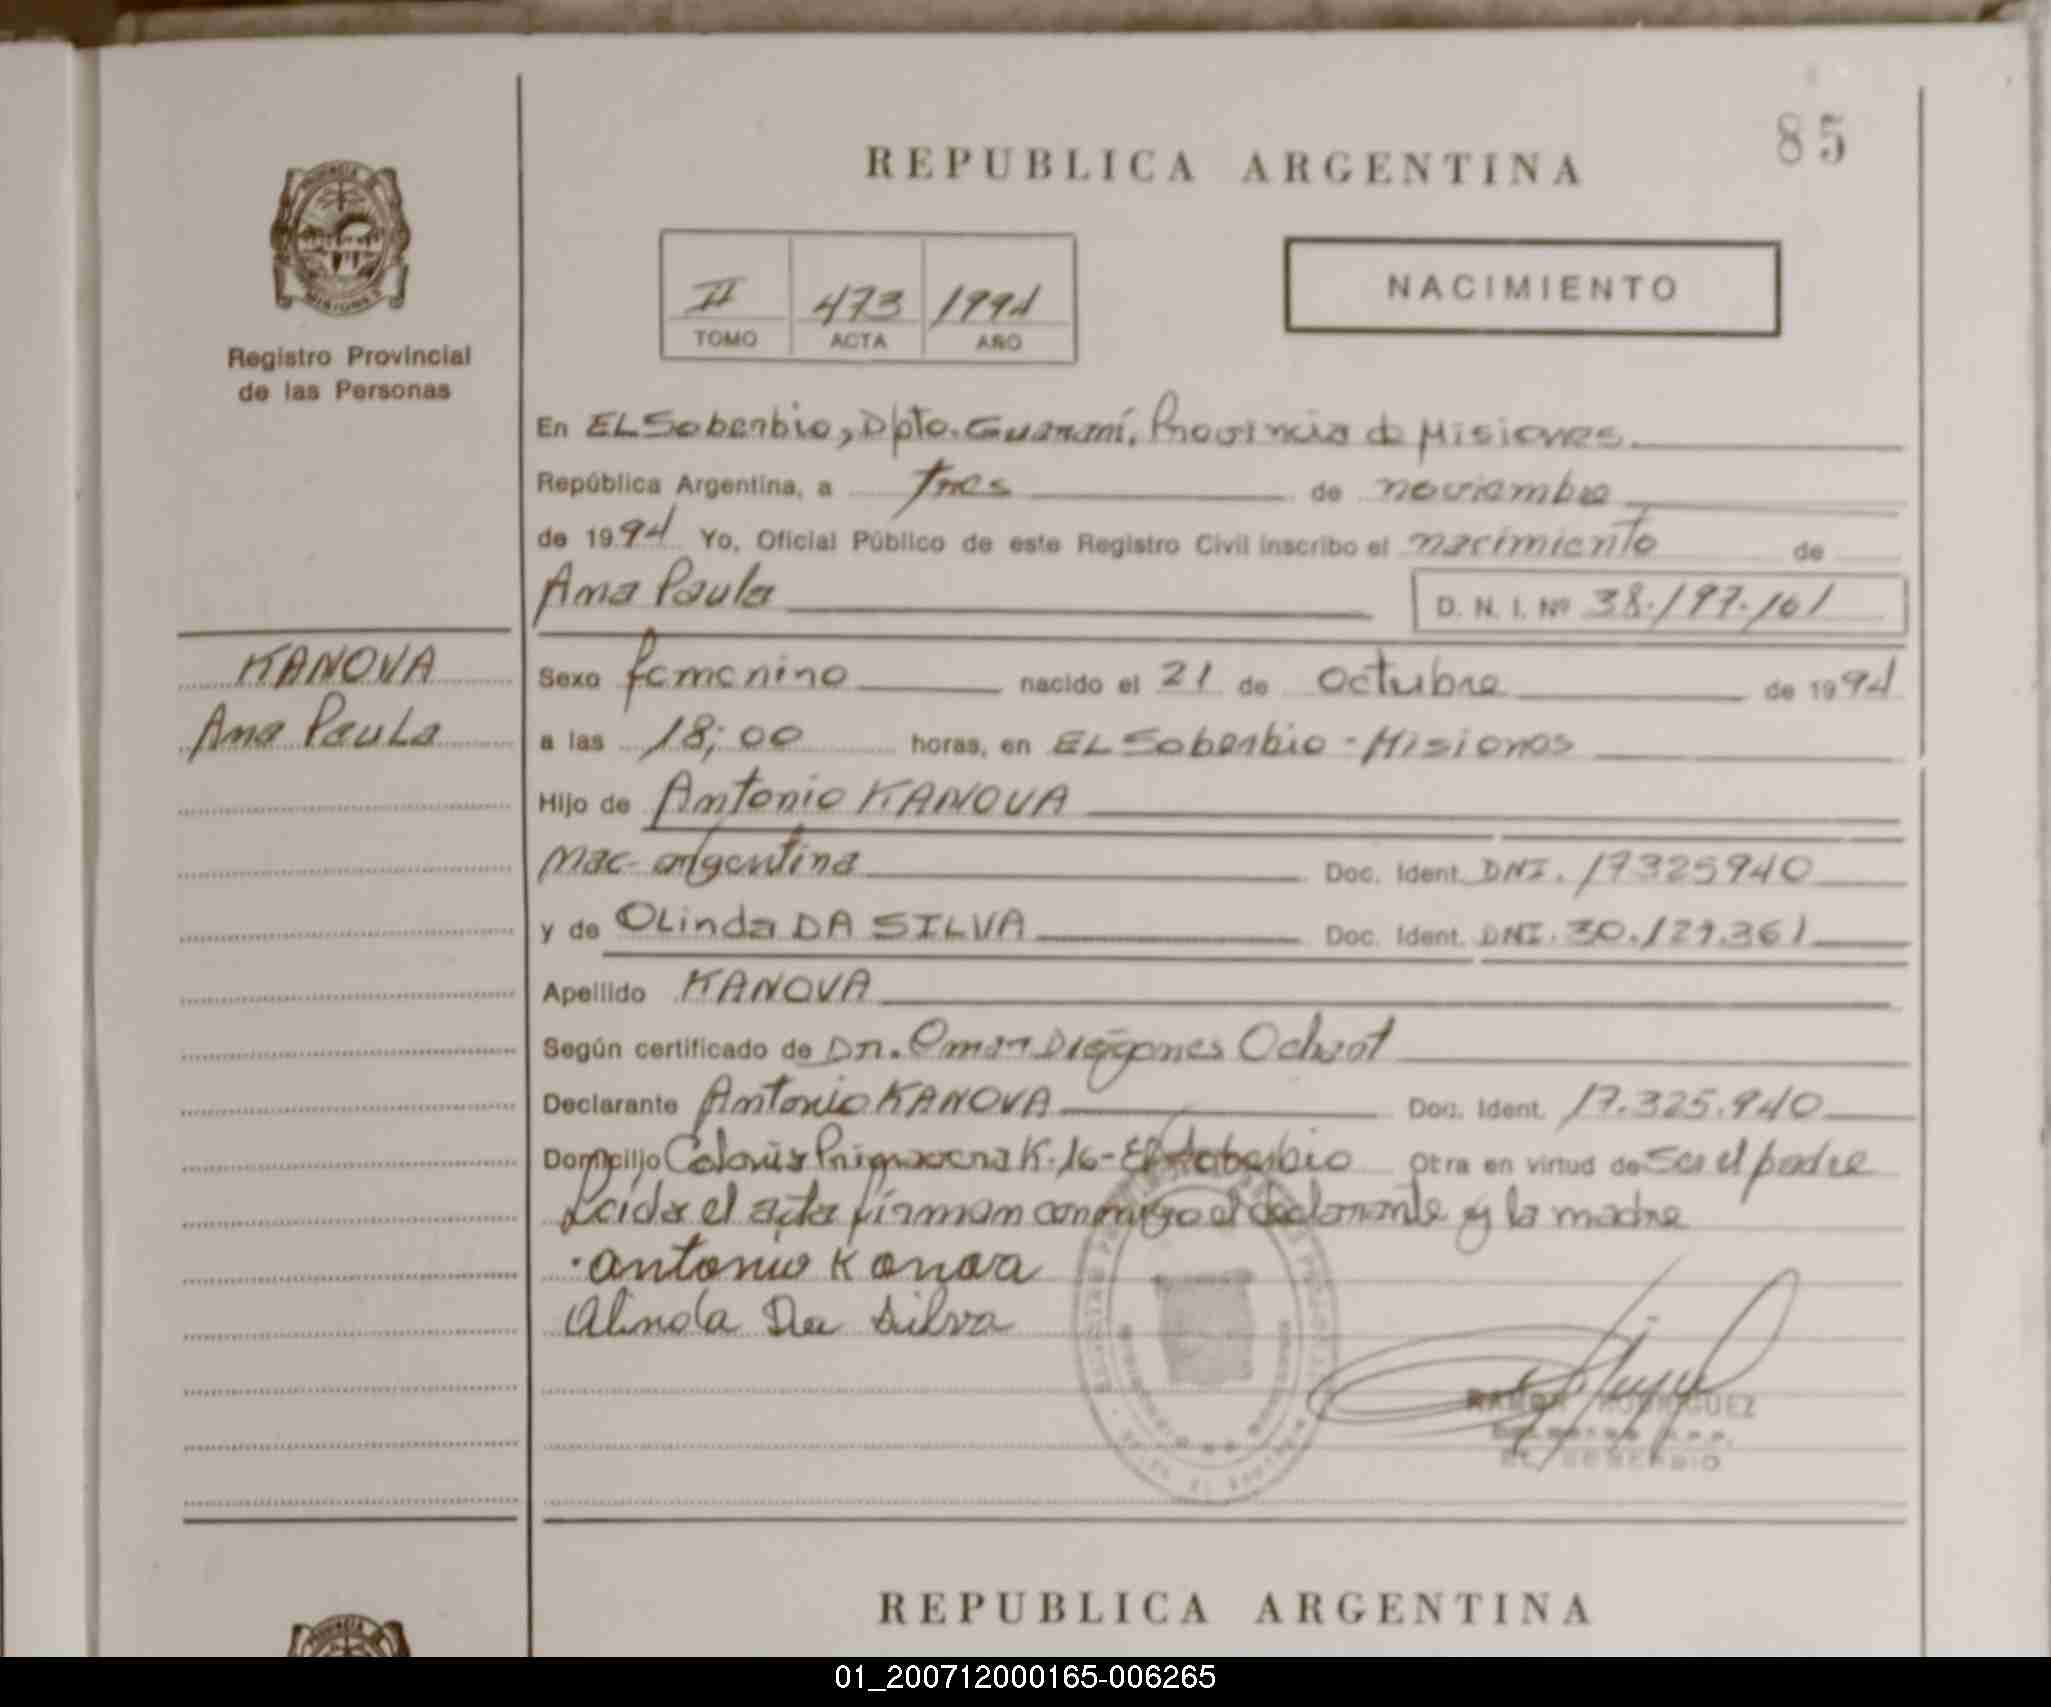 85
REPUBLICA ARGENTINA
II 473 1994
TOMO ACTA AÑO
NACIMIENTO
Registro Provincial
de las Personas
En EL Soberbio, Dpto. Guaraní, Provincia de Misiones
República Argentina, a tres de noviembre
de 1994 Yo, Oficial Público de este Registro Civil inscribo el nacimiento de
Ana Paula D. N. I. Nº 38.197.101
KANOVA
Ana PauLa
Sexo femenino nacido el 21 de octubre de 1994
a las 18;00 horas, en EL Soberbio - Misiones
Hijo de Antonio KANOVA
nac- argentina Doc. Ident. DNI. 17325940
y de OLinda DA SILVA Doc. Ident. DNI. 30.129.361
Apellido KANOVA
Según certificado de Dr. Omar Diógenes Ochoat
Declarante Antonio KANOVA Doc. Ident. 17.325.940
Domicilio Colonia Primavera K.16- El Soberbio Otra en virtud de ser el padre
Leida el acta firman conmigo el declarante y la madre
antonio Kanova
Olinda Da Silva
RAMON RODRIGUEZ
EL SOBERBIO
REPUBLICA ARGENTINA
01_200712000165-006265